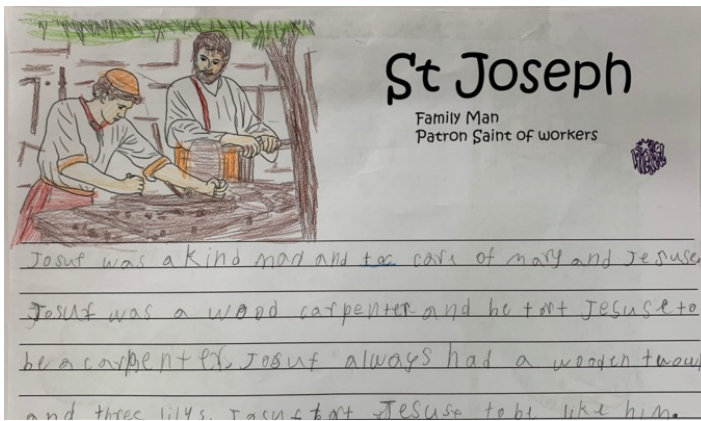 St Joseph
Family Man
Patron Saint of workers
Josuf was a kind man and tac care of mary and Jesuse
Josuf was a wood carpenter and he tort Jesuse to
be a carpenter. Josuf always had a wooden
and three lilys. Josuf tort Jesuse to be like him.